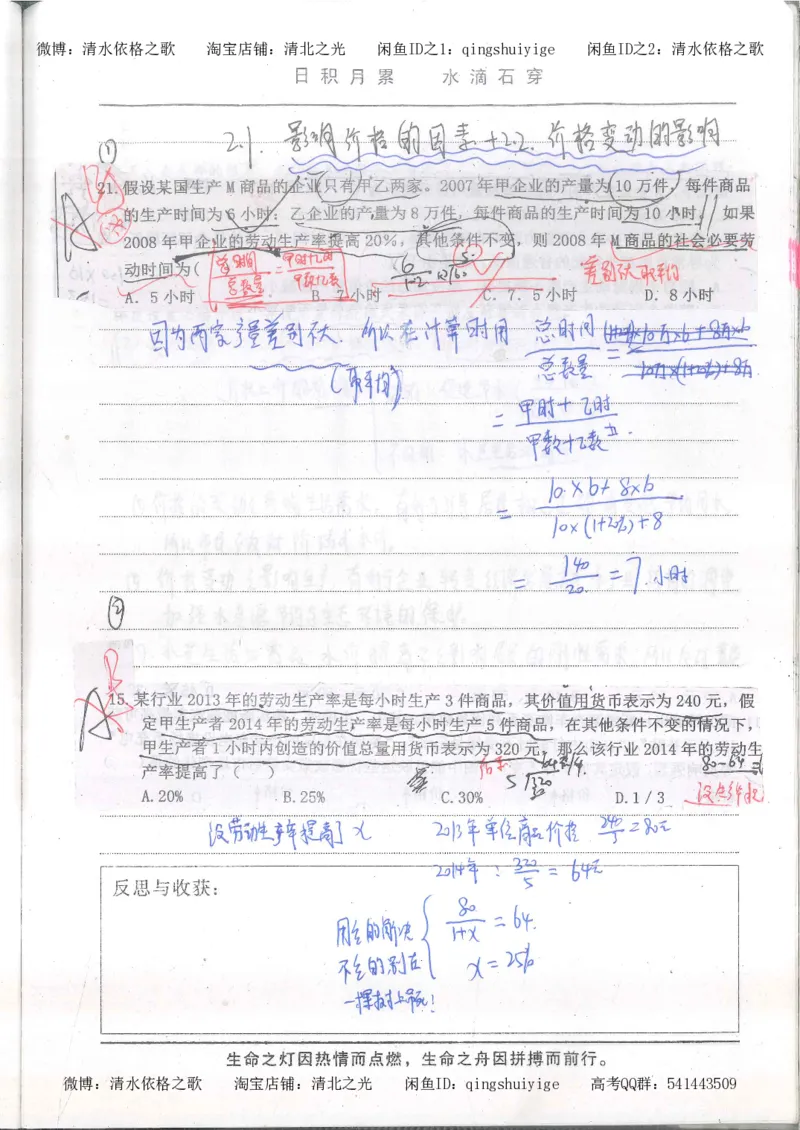 微博：清水依格之歌 淘宝店铺：清北之光 闲鱼ID之1：qingshuiyige 闲鱼ID之2：清水依格之歌
日积月累 水滴石穿
(1) 2.1. 影响价格的因素+2.2. 价格变动的影响
21. 假设某国生产 M 商品的企业只有甲乙两家。2007 年甲企业的产量为 10 万件，每件商品
的生产时间为 6 小时；乙企业的产量为 8 万件，每件商品的生产时间为 10 小时。如果
2008 年甲企业的劳动生产率提高 20%，其他条件不变，则 2008 年 M 商品的社会必要劳
动时间为（
总时间/总数量 = 甲时+乙时/甲数+乙数
差别大取平均
A. 5 小时 B. 7 小时 C. 7. 5 小时 D. 8 小时
因为两家产量差别大，所以在计算时用 总时间/总数量
(取平均)
= 甲时+乙时/甲数+乙数
= 10×6+8×b/10×(1+20%)+8
= 140/20 = 7小时
②
B
15. 某行业 2013 年的劳动生产率是每小时生产 3 件商品，其价值用货币表示为 240 元，假
定甲生产者 2014 年的劳动生产率是每小时生产 5 件商品，在其他条件不变的情况下，
甲生产者 1 小时内创造的价值总量用货币表示为 320 元，那么该行业 2014 年的劳动生
产率提高了（ ）
A.20% B.25% C.30% D.1 / 3
设劳动生产率提高了 x 2013年单位商品价格 240/3=80元
2014年：320/5 = 64元
反思与收获：
80/1+x = 64.
x=25%
用全的解决
不全的别在
一棵树上吊死！
生命之灯因热情而点燃，生命之舟因拼搏而前行。
微博：清水依格之歌 淘宝店铺：清北之光 闲鱼ID：qingshuiyige 高考QQ群：541443509